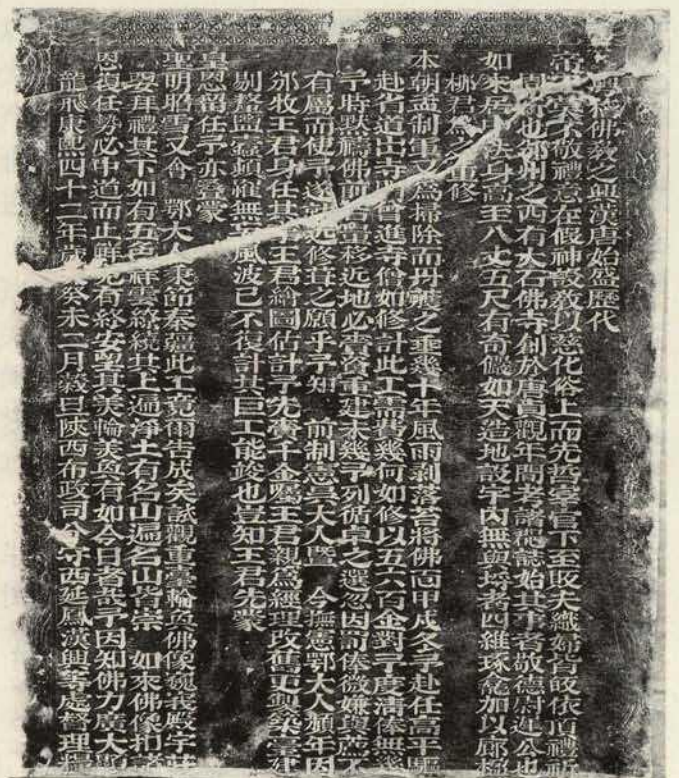 興稽佛教之興漢唐始盛歷代
帝王莫不敬禮意在假神設教以慈化俗上而先哲宰官下至販夫織婦皆皈依頂禮祈
也邠州之西有大石佛寺創於唐貞觀年間考諸碑誌始其事者敬德尉遲公也
如來居中法身高至八丈五尺有奇儼如天造地設宇內無與埒者四維琢龕加以廊
柳君為之重修
本朝孟制軍又為掃除而丹雘之垂幾十年風雨剥落苔將佛面甲戌冬予赴任高平驅
赴省道出寺前曾進寺僧如修計此工需費幾何如修以五六百金對予度清俸無幾
予時默禱佛前若量移近地必賫資重建未幾予列循卓之選忽因罰俸微嫌與薦不
有屬而使予遂就近修葺之願乎予知 前制憲吳大人暨 今撫憲鄂大人願年因
邠牧王君身任其事王君繪圖估計予先賫千金囑王君親為經理改舊更興築臺建
剔弊盬蠹頻摧無端風波已不復計其巨工能竣也豈知王君先蒙
皇恩留任予亦登蒙
聖明昭雪又會 鄂大人秉節秦疆此工竟爾告成矣試觀重臺輪奐佛像巍峩殿宇莊
拜禮其下如有五色祥雲繚繞其上遍淨土有名山遍名山皆崇 如來佛像扣
恩復任勢必中道而止鮮克有終安望其美輪美奐有如今日者哉予因知佛力廣大顯
龍飛康熙四十二年歲次癸未二月穀旦陝西布政司分守西延鳳漢興等處督理糧